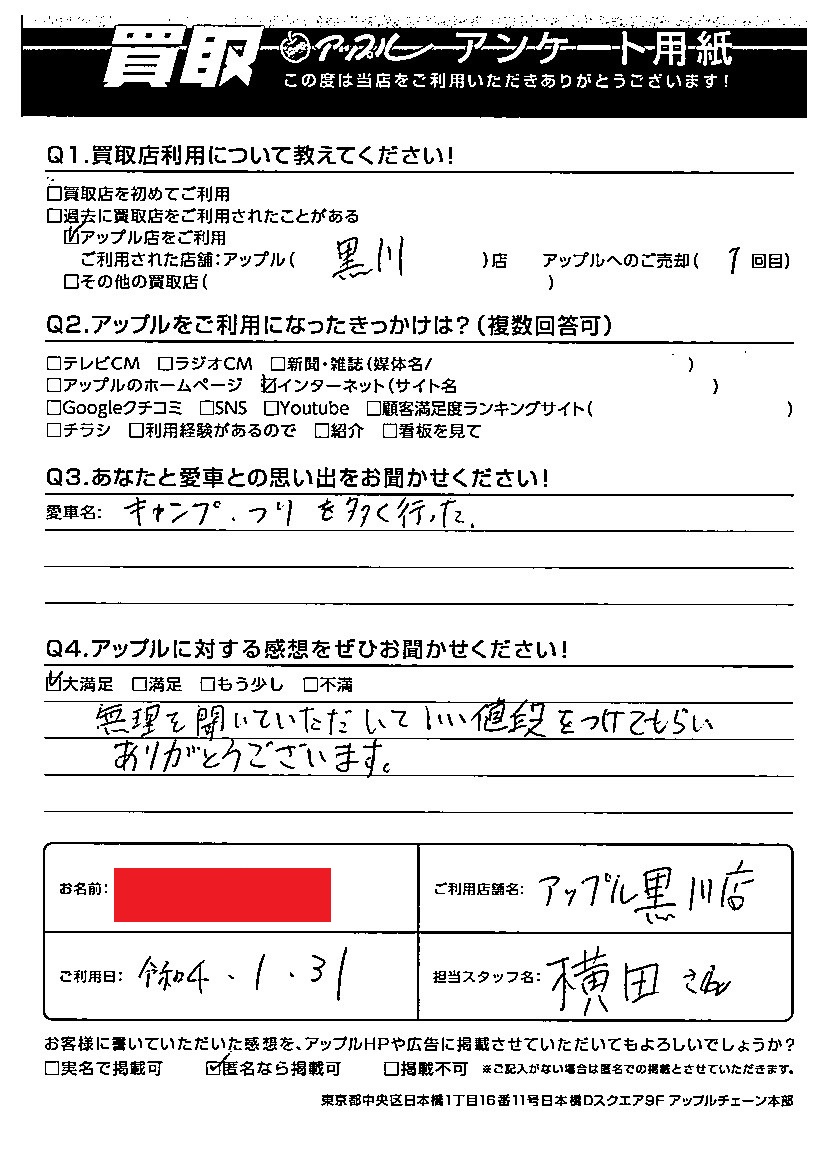 買取 アップル アンケート用紙
この度は当店をご利用いただきありがとうございます!
Q1.買取店利用について教えてください!
□買取店を初めてご利用
□過去に買取店をご利用されたことがある
☑アップル店をご利用
ご利用された店舗:アップル( 黒川 )店 アップルへのご売却( 1 回目)
□その他の買取店( )
Q2.アップルをご利用になったきっかけは?(複数回答可)
□テレビCM □ラジオCM □新聞・雑誌(媒体名/ )
□アップルのホームページ ☑インターネット(サイト名 )
□Googleクチコミ □SNS □Youtube □顧客満足度ランキングサイト( )
□チラシ □利用経験があるので □紹介 □看板を見て
Q3.あなたと愛車との思い出をお聞かせください!
愛車名: キャンプ、つりを多く行った。
Q4.アップルに対する感想をぜひお聞かせください!
☑大満足 □満足 □もう少し □不満
無理を聞いていただいていい値段をつけてもらい
ありがとうございます。
お名前: ご利用店舗名: アップル黒川店
ご利用日: 令和4.1.31 担当スタッフ名: 横田さん
お客様に書いていただいた感想を、アップルHPや広告に掲載させていただいてもよろしいでしょうか?
□実名で掲載可 ☑匿名なら掲載可 □掲載不可 ※ご記入がない場合は匿名での掲載とさせていただきます。
東京都中央区日本橋1丁目16番11号日本橋Dスクエア9F アップルチェーン本部